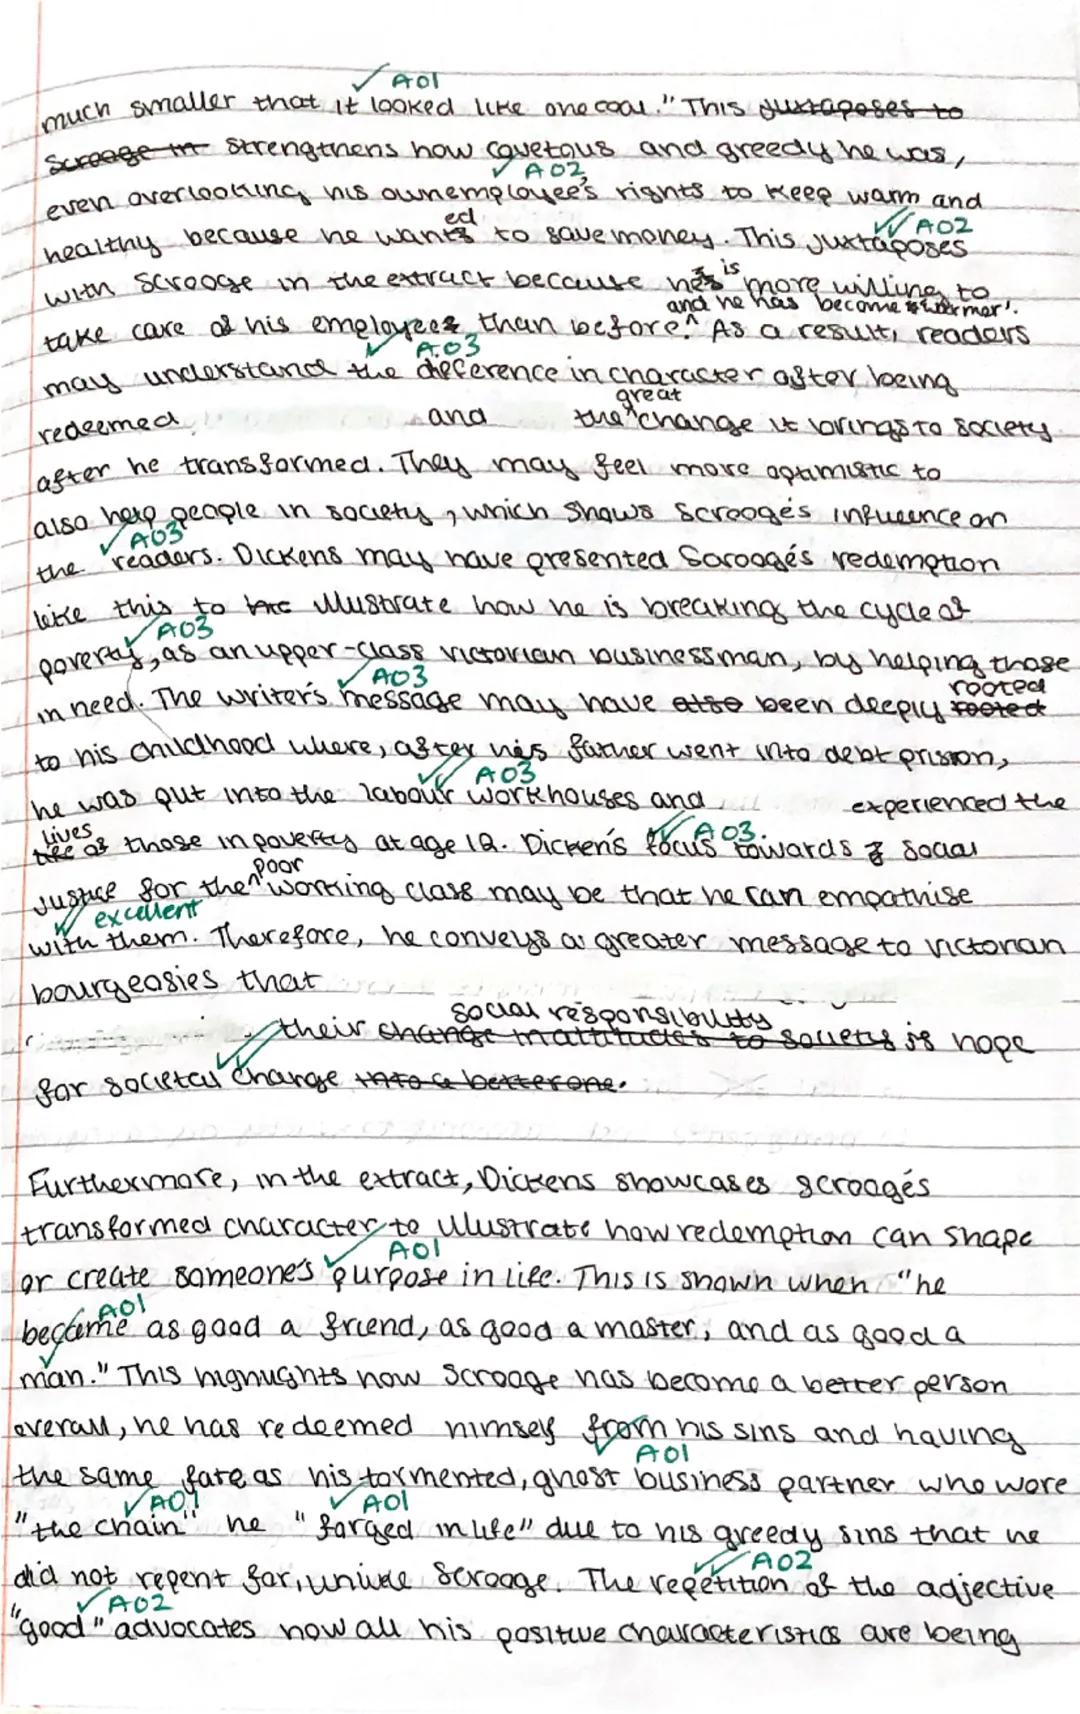 AO1
much smaller that it looked like one coal." This juxtaposes to
Scrooge in strengthens how covetous and greedy he was,
AO2
even overlooking his own employee's rights to keep warm and
ed AO2
healthy because he wants to save money. This juxtaposes
is
with Scrooge in the extract because he's more willing to
and he has become 'warmer'.
take care of his employees than before^ As a result, readers
AO3
may understand the difference in character after being
great
redeemed and the^change it brings to society
after he transformed. They may feel more optimistic to
also help people in society, which shows Scrooge's influence on
AO3
the readers. Dickens may have presented Scrooge's redemption
like this to illustrate how he is breaking the cycle of
AO3
poverty, as an upper-class victorian businessman, by helping those
AO3 rooted
in need. The writer's message may have also been deeply rooted
to his childhood where, after his father went into debt prison,
AO3
he was put into the labour workhouses and experienced the
lives AO3.
life of those in poverty at age 12. Dicken's focus towards social
poor
justice for the^working class may be that he can empathise
excellent
with them. Therefore, he conveys a greater message to victorian
bourgeosies that
social responsibility
their change in attitudes to society is hope
for societal change into a better one.
Furthermore, in the extract, Dickens showcases scrooge's
transformed character to illustrate how redemption can shape
AO1
or create someone's purpose in life. This is shown when "he
AO1
became as good a friend, as good a master, and as good a
man." This highlights how Scrooge has become a better person
overall, he has redeemed himself from his sins and having
AO1
the same fate as his tormented, ghost business partner who wore
AO1 AO1
"the chain" he "forged in life" due to his greedy sins that he
AO2
did not repent for, unlike Scrooge. The repetition of the adjective
AO2
"good" advocates how all his positive characteristics are being